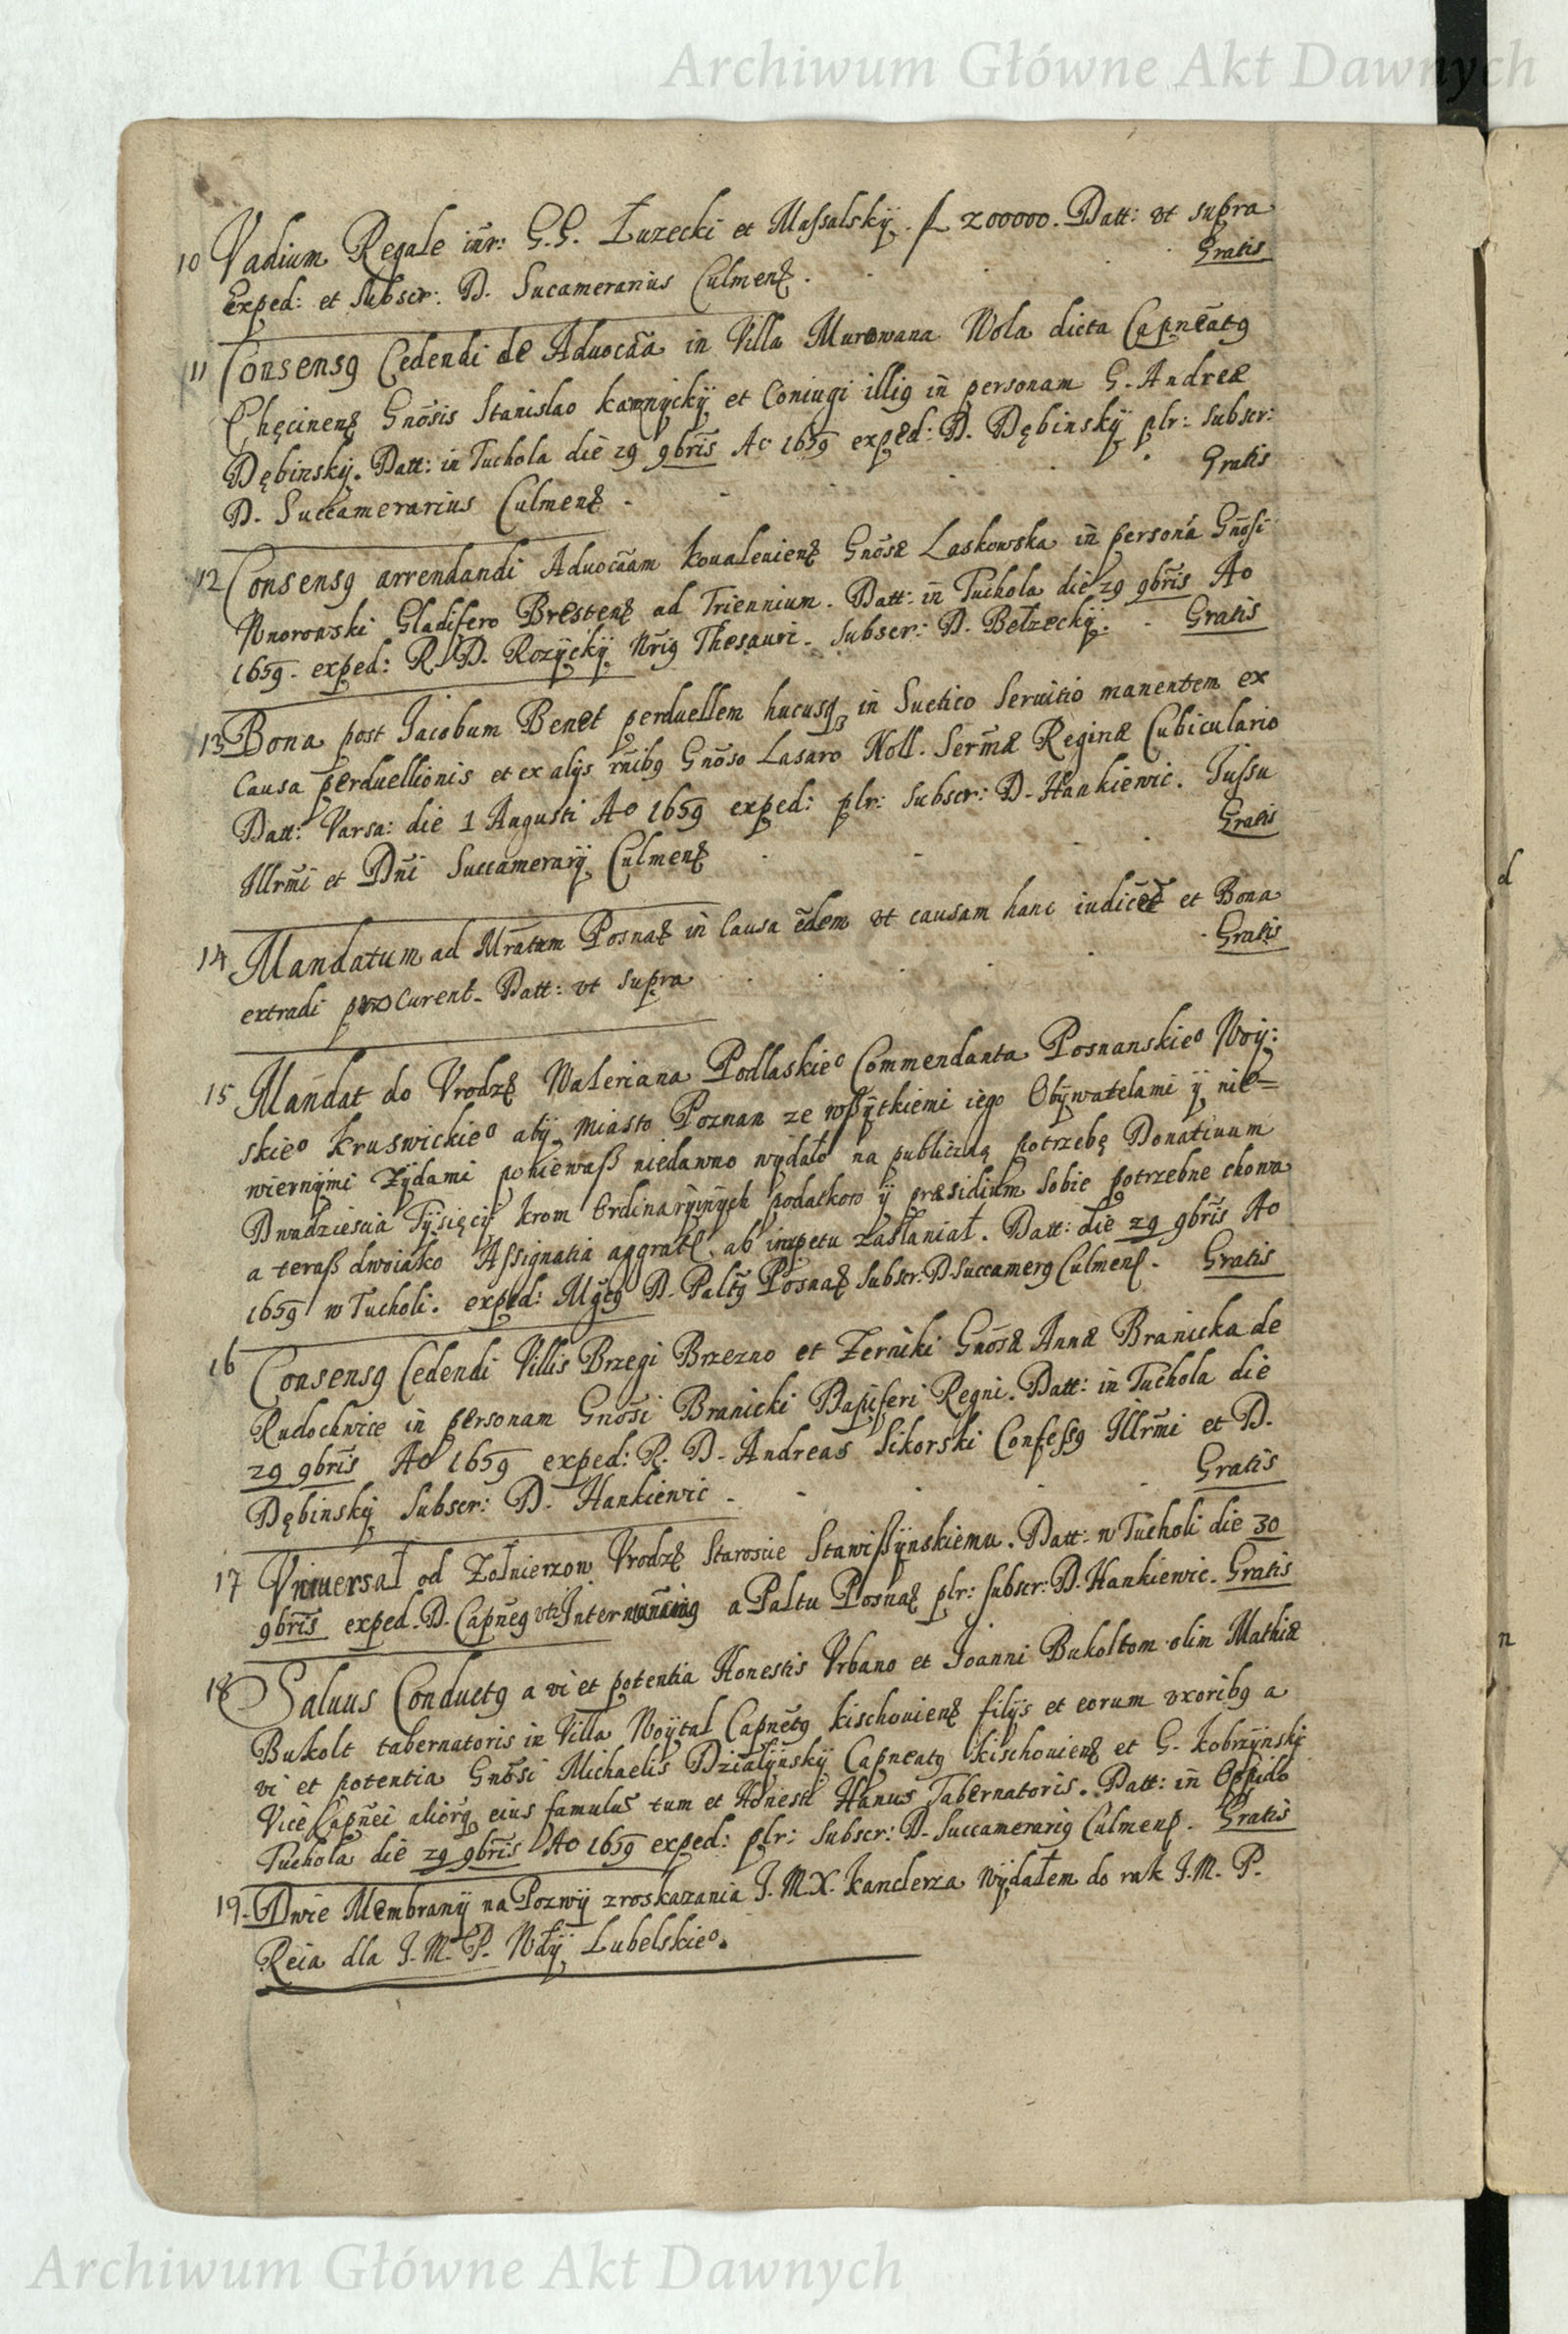 Archiwum Główne Akt Dawnych
10 Vadium Regale intr: G.G. Łuzecki et Massalskÿ. f 200000. Datt: vt supra
Exped: et Subscr: D. Sucamerarius Culmenẜ. Gratis
11 Consensq Cedendi de Aduocãa in Villa Murowana Wola dicta Capneãtq
Chęcinenẜ Gnõsis Stanislao karnÿckÿ et Coniugi illiq in personam G. Andreæ
Dębinskÿ. Datt: in Tuchola die 29 9bris Ao 1659 exped: D. Dębinskÿ plr: Subscr:
D. Succamerarius Culmenẜ. Gratis
12 Consensq arrendandi Aduocãam koualeuienẜ Gnõsæ Laskowska in persona Gnõsi
Wnorowski Gladifero Brestenẜ ad Triennium. Datt: in Tuchola die 29 9bris Ao
1659. exped: R. D. Rozÿckÿ Nriq Thesauri. Subscr: D. Bełzeckÿ. Gratis
13 Bona post Jacobum Benet perduellem hucusq in Suetico Seruitio manentem ex
Causa perduellionis et ex alÿs rnibq Gnõso Lasaro Noll. Sermæ Reginæ Cubiculario
Datt: Varsa: die 1 Augusti Ao 1659 exped: plr: Subscr: D. Hankiewic. Jussu
Illrmi et Dni Succamerarÿ Culmenẜ Gratis
14 Mandatum ad Mratum Posnaẜ in Causa eãdem vt causam hanc iudicet et Bona
extradi procurent. Datt: vt supra Gratis
15 Mandat do Vrodzẜ Waleriana Podlaskieo Commendanta Posnanskieo Woÿ:
skieo kruswickieo abÿ Miasto Poznan ze wßÿtkiemi iego Obÿwatelami ÿ nie=
wiernÿmi Zÿdami poniewaß niedawno wÿdało na publiczną potrzebę Donatiuum
Dwudziescia Tÿsięcÿ krom Ordinarÿinÿch podatkow ÿ præsidium Sobie potrzebne chowa
a teraß dwoiako Assignatia aggratẜ. ab impetu zasłaniał. Datt: die 29 9bris Ao
1659 w Tucholi. exped: Mgcq D. Paltq Posnaẜ Subscr: D Succamerq Culmenẜ. Gratis
16 Consensq Cedendi Villis Brzegi Brzezno et Zerniki Gnõsæ Annæ Branicka de
Rudochwice in personam Gnõsi Branicki Dapiferi Regni. Datt: in Tuchola die
29 9bris Ao 1659 exped: R. D. Andreas Sikorski Confessq Illrmi et D.
Dębinskÿ Subscr: D. Hankiewic. Gratis
17 Vniuersał od Zołnierzow Vrodzẜ Staroscie Stawißÿnskiemu. Datt: w Tucholi die 30
9bris exped. D. Capneq vti a Paltu Posnaẜ plr: Subscr: D. Hankiewic. Gratis
18 Saluus Conductq a vi et potentia Honestis Vrbano et Joanni Bukoltom olim Mathiæ
Bukolt tabernatoris in Villa Woÿtal Capnetq kischouienẜ filÿs et eorum vxoribq a
vi et potentia Gnõsi Michaelis Działÿnskÿ Capneatq kischouienẜ et G. kobrzÿnskÿ
Vice Capnei aliorq eius famulus tum et Honesti Hanus Tabernatoris. Datt: in Oppido
Tuchola die 29 9bris Ao 1659 exped: plr: Subscr: D. Succamerariq Culmenẜ. Gratis
19. Dwie Membranÿ na Pozwÿ zroskazania J.M.X. kanclerza Wÿdałem do rąk J.M.P.
Reia dla J.M.P. Wdÿ Lubelskieo.
d
n
Archiwum Główne Akt Dawnych